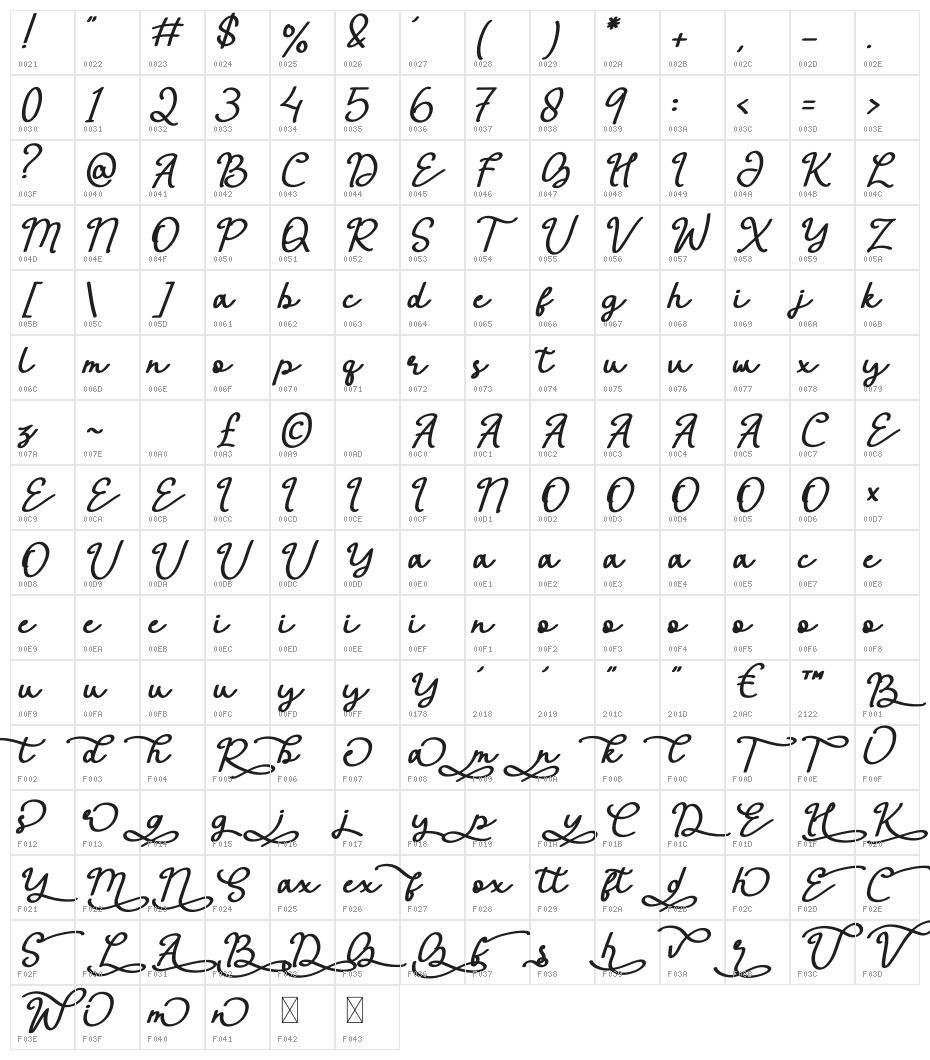 ! " # $ % & ' ( ) * + , - .
0021 0022 0023 0024 0025 0026 0027 0028 0029 002A 002B 002C 002D 002E
0 1 2 3 4 5 6 7 8 9 : < = >
0030 0031 0032 0033 0034 0035 0036 0037 0038 0039 003A 003C 003D 003E
? @ A B C D E F G H I J K L
003F 0040 0041 0042 0043 0044 0045 0046 0047 0048 0049 004A 004B 004C
M N O P Q R S T U V W X Y Z
004D 004E 004F 0050 0051 0052 0053 0054 0055 0056 0057 0058 0059 005A
[ \ ] a b c d e f g h i j k
005B 005C 005D 0061 0062 0063 0064 0065 0066 0067 0068 0069 006A 006B
l m n o p q r s t u u w x y
006C 006D 006E 006F 0070 0071 0072 0073 0074 0075 0076 0077 0078 0079
z ~ £ © A A A A A A C E
007A 007E 00A0 00A3 00A9 00AD 00C0 00C1 00C2 00C3 00C4 00C5 00C7 00C8
E E E I I I I N O O O O O x
00C9 00CA 00CB 00CC 00CD 00CE 00CF 00D1 00D2 00D3 00D4 00D5 00D6 00D7
O U U U U Y a a a a a a c e
00D8 00D9 00DA 00DB 00DC 00DD 00E0 00E1 00E2 00E3 00E4 00E5 00E7 00E8
e e e i i i i n o o o o o o
00E9 00EA 00EB 00EC 00ED 00EE 00EF 00F1 00F2 00F3 00F4 00F5 00F6 00F8
u u u u y y Y ' ' " " € ™ B
00F9 00FA 00FB 00FC 00FD 00FF 0178 2018 2019 201C 201D 20AC 2122 F001
t d h R b o a m n k l T T O
F002 F003 F004 F005 F006 F007 F008 F009 F00A F00B F00C F00D F00E F00F
s r g g j j y p y C D E H K
F012 F013 F014 F015 F016 F017 F018 F019 F01A F01B F01C F01D F01F F020
Y M N S ax ex f ox tt ft d h E C
F021 F022 F023 F024 F025 F026 F027 F028 F029 F02A F02B F02C F02D F02E
S L A B D G G f s h v r U V
F02F F030 F031 F035 F036 F037 F038 F039 F03A F03B F03C F03D
W i m n
F03E F03F F040 F041 F042 F043